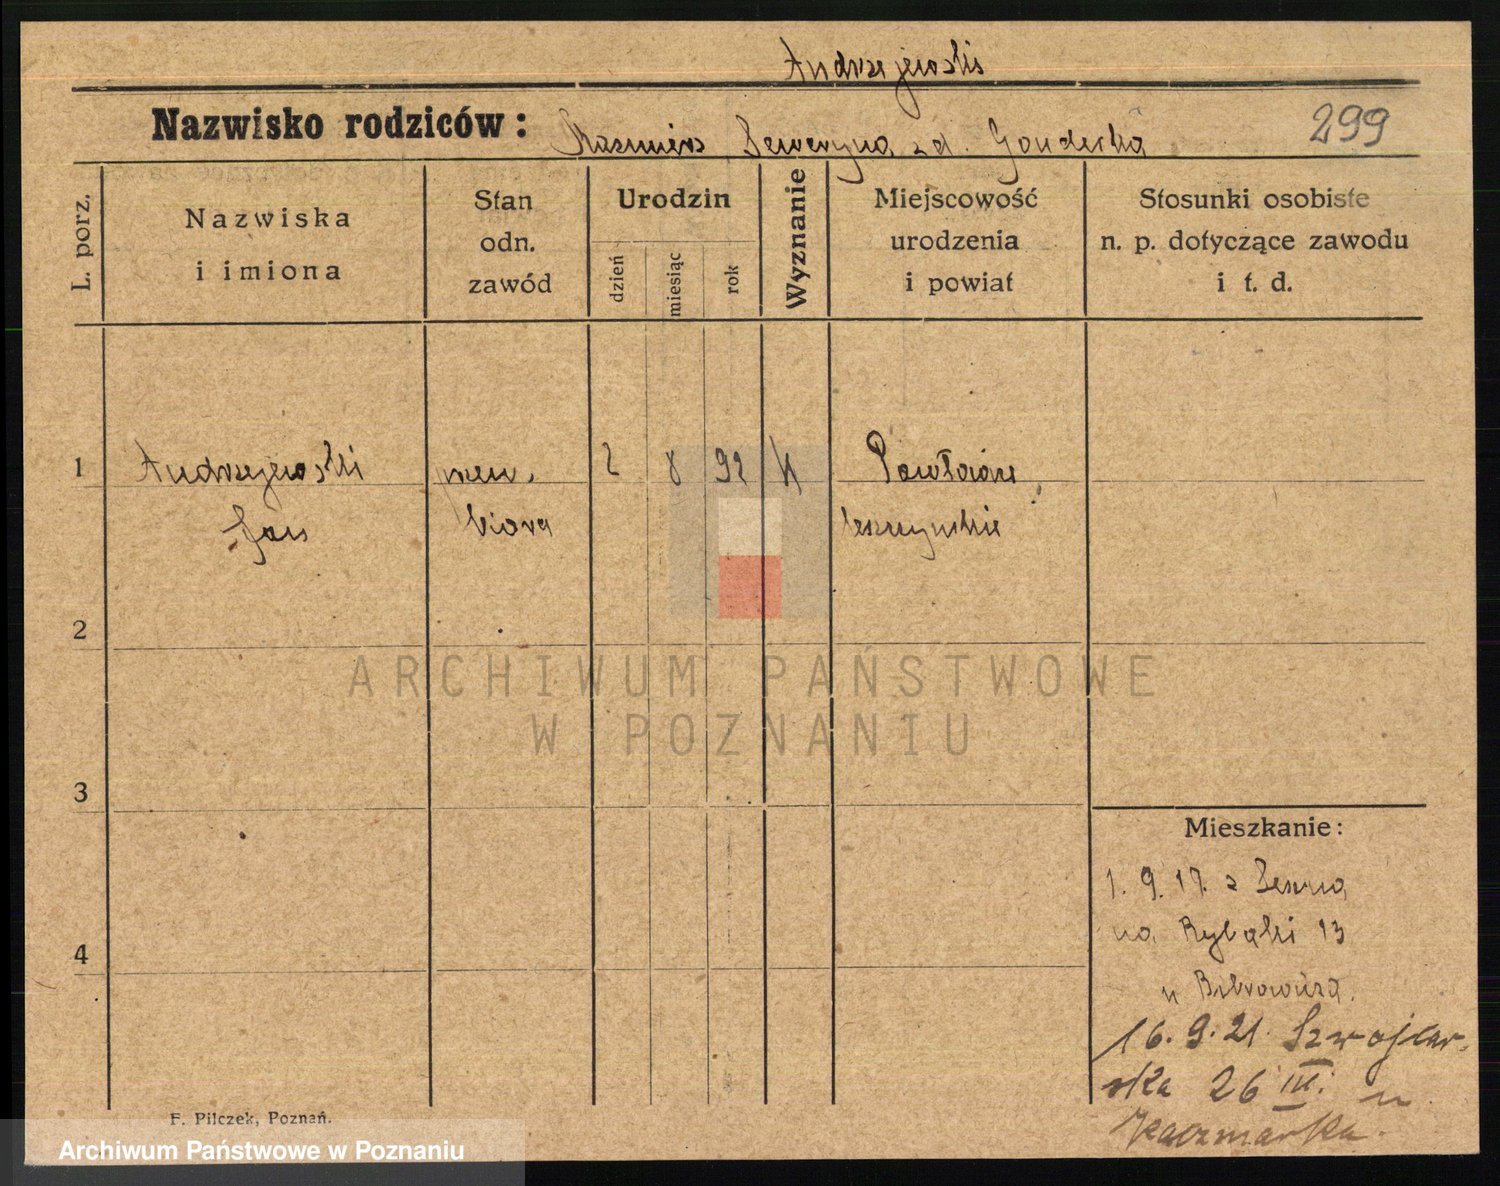 Andrzejewski
Nazwisko rodziców: Kazimierz Seweryna zd. Gonderka
299
L. porz.
Nazwiska
i imiona
Stan
odn.
zawód
Urodzin
dzień
miesiąc
rok
Wyznanie
Miejscowość
urodzenia
i powiat
Stosunki osobiste
n. p. dotyczące zawodu
i t. d.
1
Andrzejewski
Jan
biora
2 8 92 k
leszczyńskie
2
3
4
ARCHIWUM PAŃSTWOWE
W POZNANIU
Mieszkanie:
1. 9. 17. z Leszna
na Rybaki 13
u
16. 9. 21. Szwajcar-
ska 26 III. u
Kaczmarka.
F. Pilczek, Poznań.
Archiwum Państwowe w Poznaniu